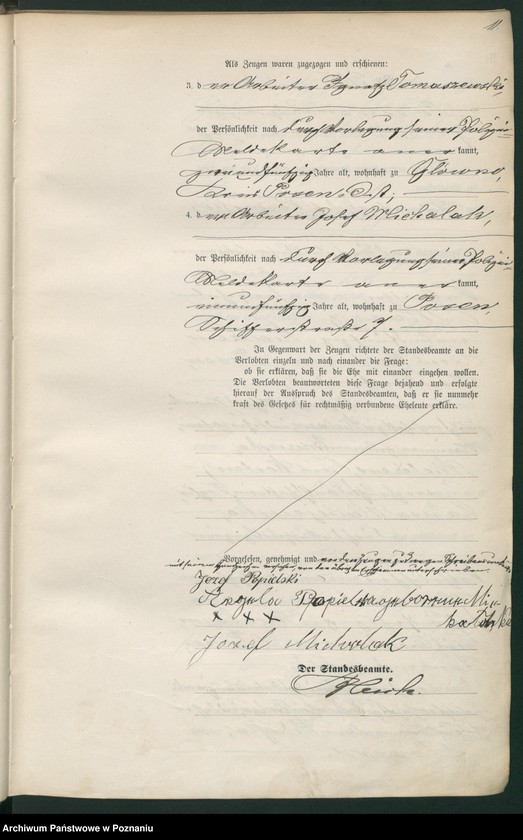 11.
Als Zeugen waren zugezogen und erschienen:
3. der Arbeiter Ignatz Tomaszewski,
der Persönlichkeit nach durch Vorlegung seiner Polizei-
Meldekarte anerkannt,
zweiundfünfzig Jahre alt, wohnhaft zu Glowno,
Kreis Posen-Ost;
4. der Arbeiter Josef Michalak,
der Persönlichkeit nach durch Vorlegung seiner Polizei-
Meldekarte anerkannt,
Jahre alt, wohnhaft zu Posen,
Schifferstraße 7.
In Gegenwart der Zeugen richtete der Standesbeamte an die
Verlobten einzeln und nach einander die Frage:
ob sie erklären, daß sie die Ehe mit einander eingehen wollen.
Die Verlobten beantworteten diese Frage bejahend und erfolgte
hierauf der Ausspruch des Standesbeamten, daß er sie nunmehr
kraft des Gesetzes für rechtmäßig verbundene Eheleute erkläre.
Vorgelesen, genehmigt und von dem Zeugen zu 3 wegen Schreibensunkunde
mit seinem Handzeichen versehen, von den übrigen Erschienenen unterschrieben
Jozef Popielski
Popielska geborene
+ + +
Jozef Michalak
Der Standesbeamte.